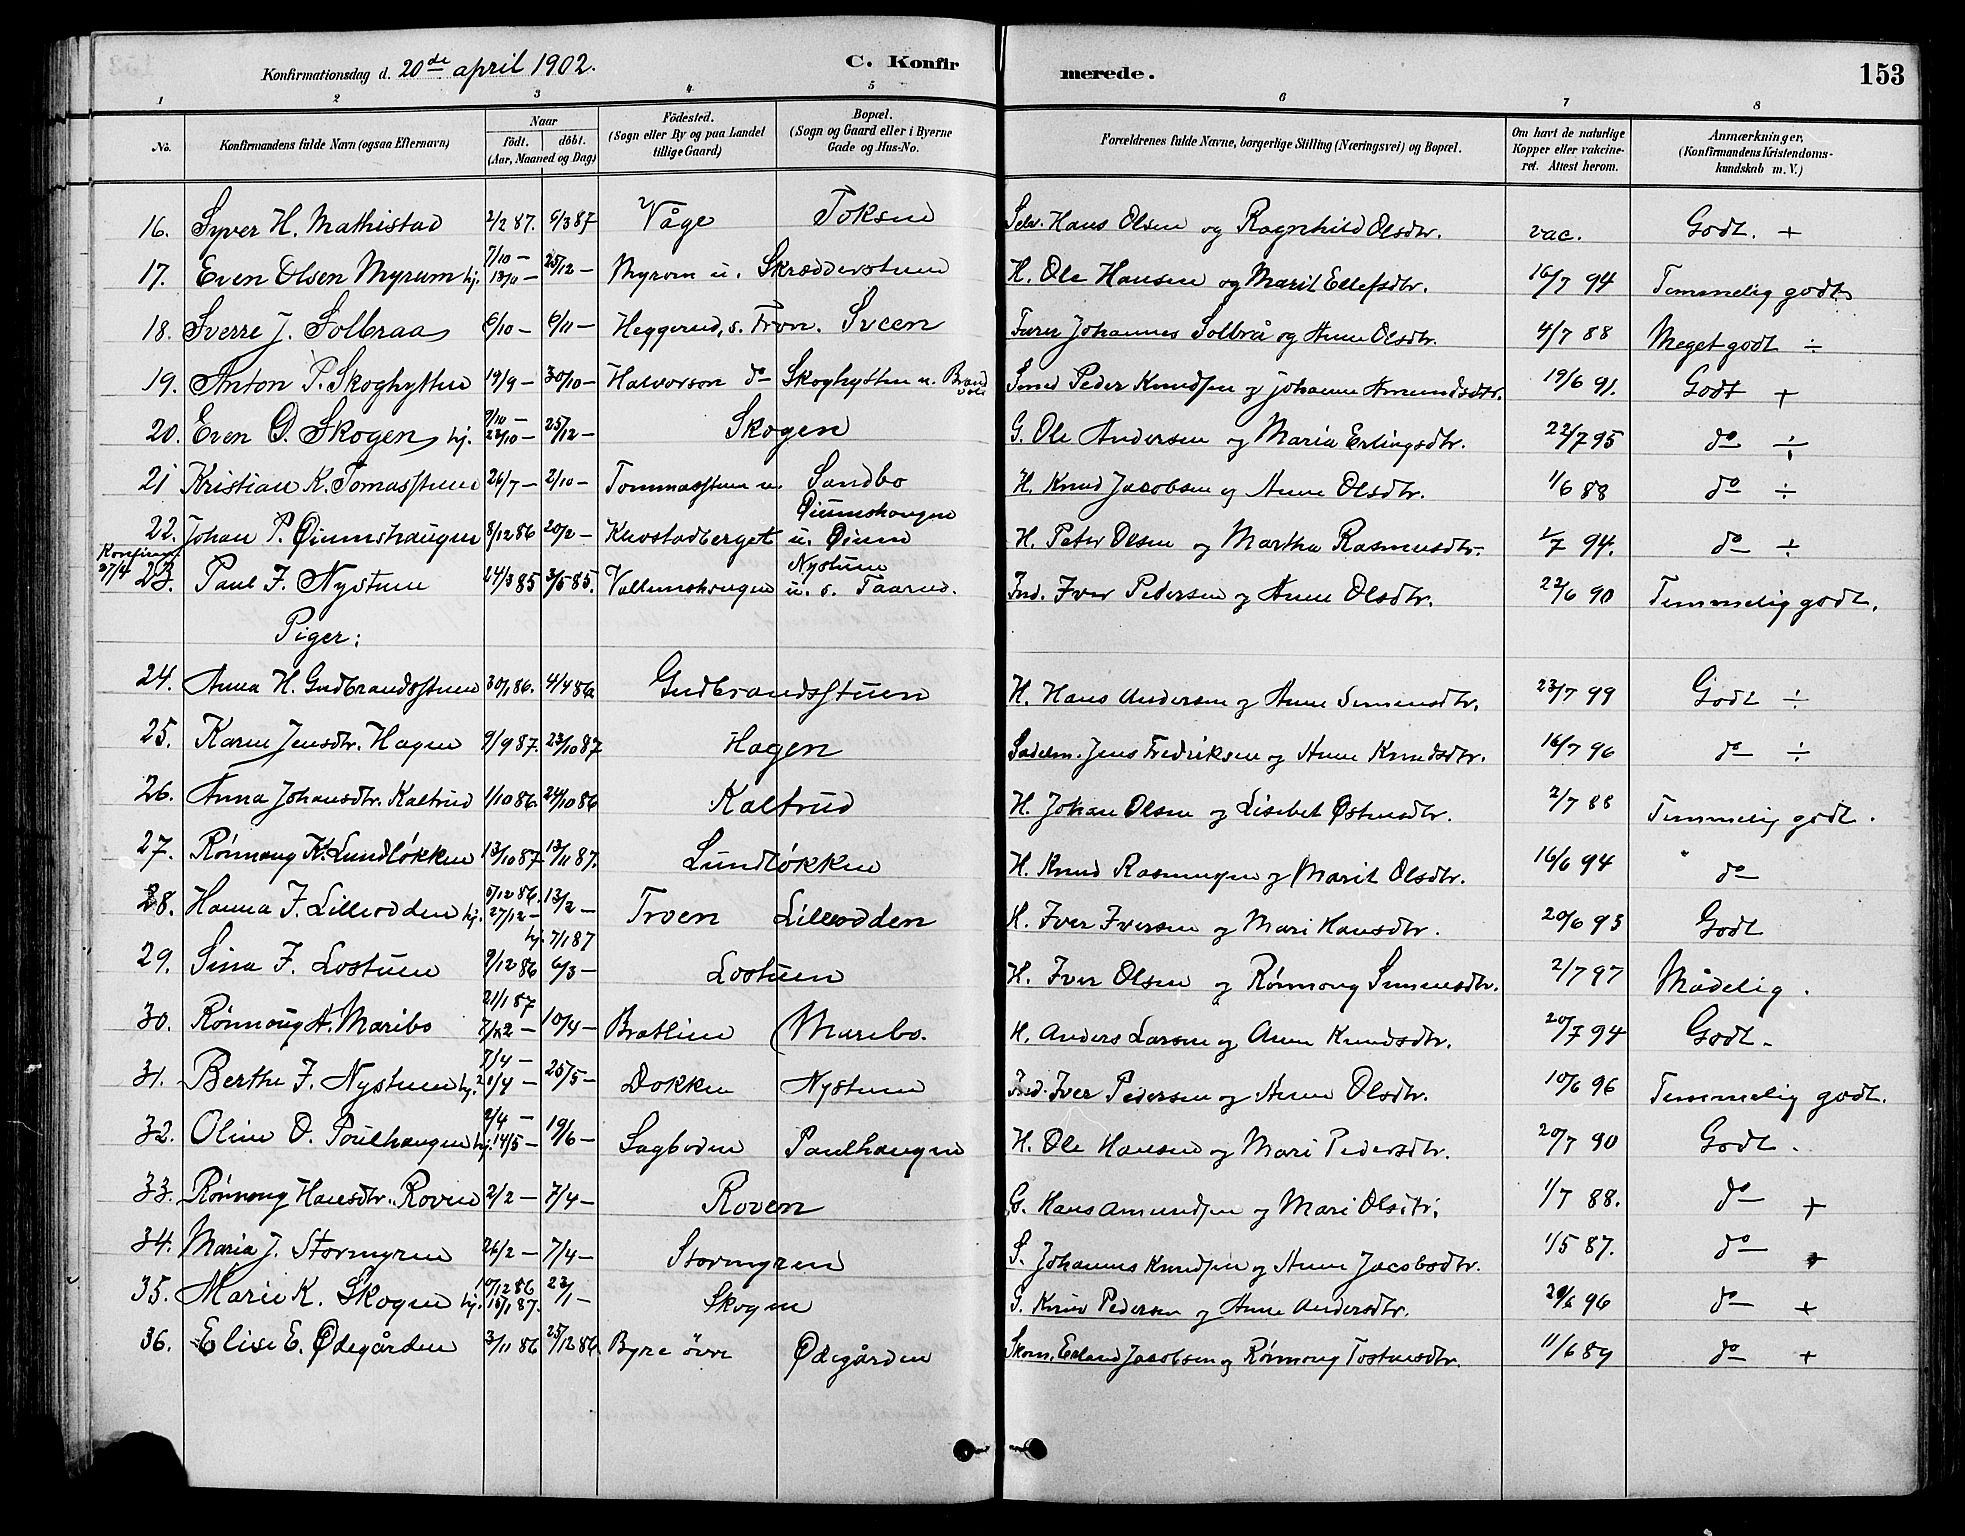 Konfirmationsdag d. 20de april 1902. C. Konfirmerede. 153
1 2 3 4 5 6 7 8
No. Konfirmandens fulde Navn (ogsaa Efternavn) Naar födt. döbt. (Aar, Maaned og Dag) Födested. (Sogn eller By og paa Landet tillige Gaard) Bopæl. (Sogn og Gaard eller i Byerne Gade og Hus-No. Forældrenes fulde Navne, borgerlige Stilling (Næringsvei) og Bopæl. Om havt de naturlige Kopper eller vakcineret. Attest herom. Anmærkninger, (Konfirmandens Kristendomskundskab m. V.)
16. Syver H. Mathistad 2/2 87. 6/3 87 Våge Toksen Selv. Hans Olsen og Ragnhild Olsdtr. vac. Godt. +
17. Even Olsen Myrum hj. 7/10 – 13/11 – 25/12 – Myrom u. Skrædderstuen H. Ole Hansen og Marit Ellefsdtr. 16/7 94 Temmelig godt
18. Sverre J. Solbraa 6/10 – 6/11 – Heggerud, s. Fron. Sveen Furer Johannes Solbrå og Anne Olsdtr. 4/7 88 Meget godt ÷
19. Anton P. Skoghytten 19/9 – 30/10 – Halvorson do Skoghytten u. Brandvold Smed Peder Knudsen og Johanne Amundsdtr. 19/6 91. Godt +
20. Even O. Skogen hj. 9/10 – 22/10 – 25/12 – Skogen G. Ole Andersen og Maria Erlingsdtr. 22/7 95 do ÷
21 Kristian K. Tomasstuen 26/7 – 2/10 – Tommasstuen u. Sandbo H. Knud Jacobsen og Anne Olsdtr. 1/6 88 do ÷
22. Johan P. Øiumshaugen 8/12 86 20/2 – Kluostadberget Øiumshaugen u. Øium H. Peter Olsen og Martha Rasmusdtr. 1/7 94. do ÷
Konfirm. 27/4 23. Paul I. Nystuen 24/3 85 3/5 85. Vollumshaugen Nystuen u. s. Taarud. Ind. Iver Pedersen og Anne Olsdtr. 22/6 90 Temmelig godt.
Piger:
24. Anna H. Gudbrandsstuen 30/1 86. 4/4 86 Gudbrandsstuen H. Hans Andersen og Anne Simensdtr. 23/7 99 Godt ÷
25. Karen Jensdtr. Hagen 9/9 87. 23/10 87 Hagen Sadelm. Jens Fredriksen og Anne Knudsdtr. 16/7 96 do ÷
26. Anna Johansdtr. Kaltrud 1/10 86. 24/10 86 Kaltrud H. Johan Olsen og Lisebet Østensdtr. 2/7 88 Temmelig godt.
27. Rønnaug K. Lundløkken 13/10 87 13/11 87. Lundløkken H. Knud Rasmussen og Marit Olsdtr. 16/6 94 do
28. Hanna I. Lillerødden hj. 5/12 86. 27/12 – 13/2 – Troen Lillerødden H. Iver Iversen og Mari Hansdtr. 20/6 93 Godt
29. Sina I. Lostuen 9/12 86 hj. 7/1 87 6/3 – Lostuen H. Iver Olsen og Rønnaug Simensdtr. 2/7 97 Mådelig.
30. Rønnaug A. Maribo 21/1 87 7/2 – 10/4 – Bratlien Maribo. H. Anders Larsen og Anne Knudsdtr. 20/7 94 Godt.
31. Berthe I. Nystuen hj. 7/4 – 21/4 – 25/5 – Dokken Nystuen Ind. Iver Pedersen og Anne Olsdtr. 10/6 96 Temmelig godt.
32. Oline O. Poulhaugen hj. 2/4 – 14/5 – 19/6 – Sagboden Paulhaugen H. Ole Hansen og Mari Pedersdtr. 20/7 90 Godt.
33. Rønnaug Hansdtr. Roven 2/2 – 7/4 – Roven G. Hans Amundsen og Mari Olsdtr. 1/7 88. do +
34. Maria J. Stormyren 26/2 – 7/4 – Stormyren S. Johannes Knudsen og Anne Jacobsdtr. 1/5 87. do +
35. Marie K. Skogen hj. 10/12 86 16/1 87. 23/1 – Skogen S. Knud Pedersen og Anne Andersdtr. 20/6 96 do +
36. Elise E. Ødegården 3/11 86 25/12 86. Byre övre Ødegården Skom. Erland Jacobsen og Rønnaug Tostensdtr. 11/6 89 do +